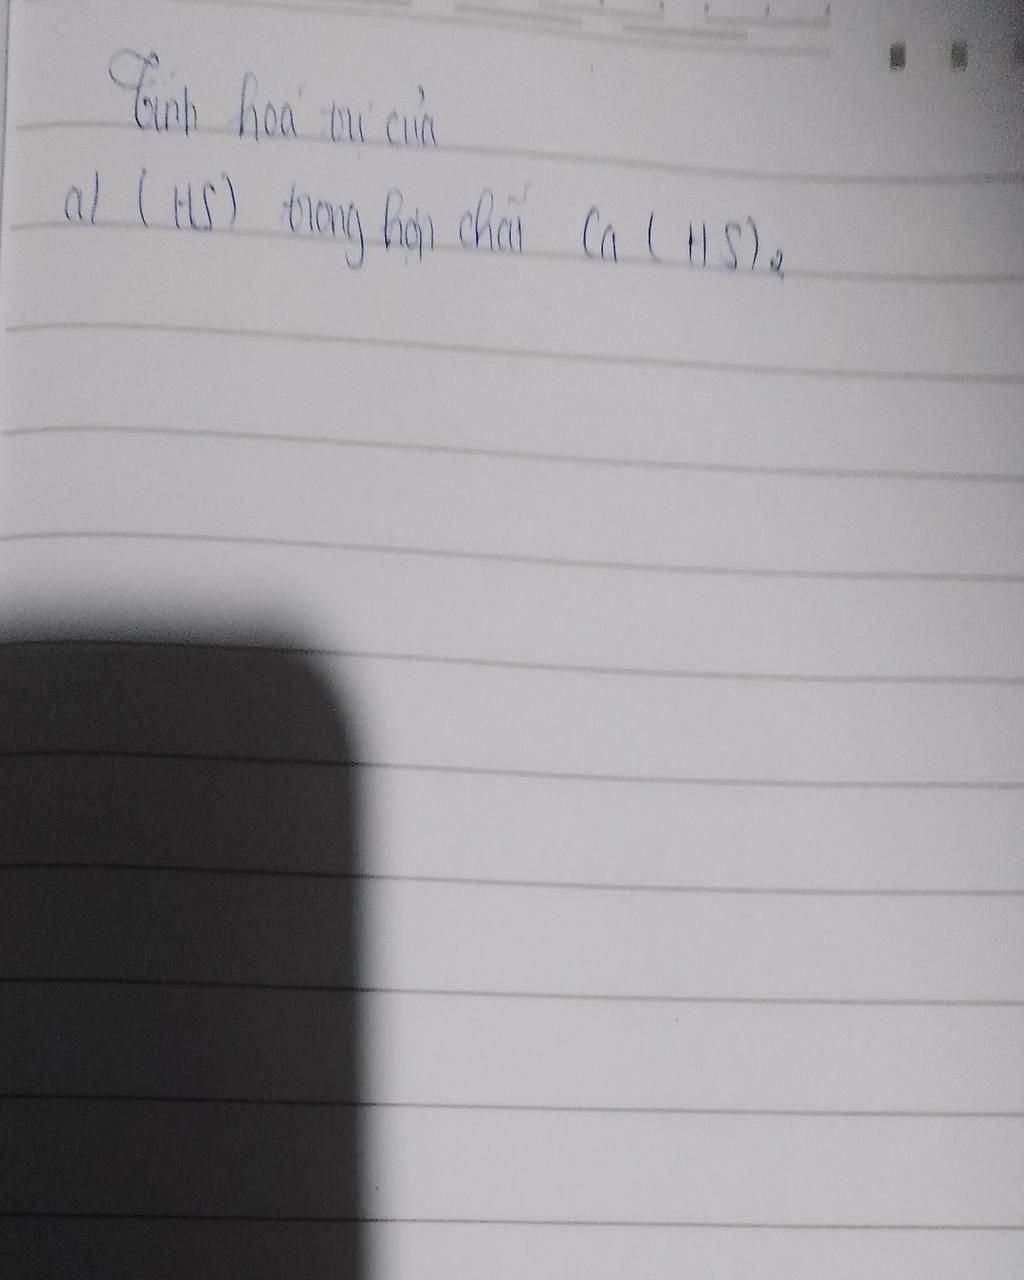 Tính hoá trị của
a) (HS) trong hợp chất Ca(HS)₂